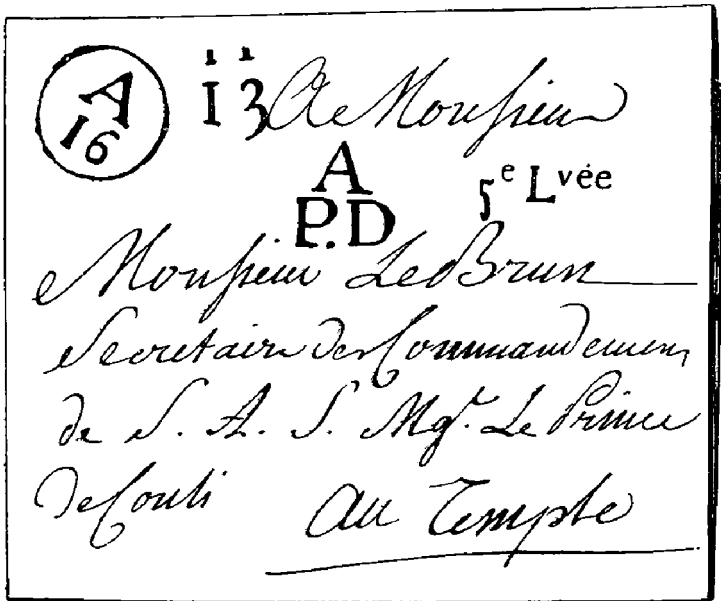 A 16
13 A Monsieur
A
P.D 5e Lvée
Monsieur Le Brun
Secretaire des Commandemens
de S. A. S. Mgr. Le Prince
de Conti Au Temple